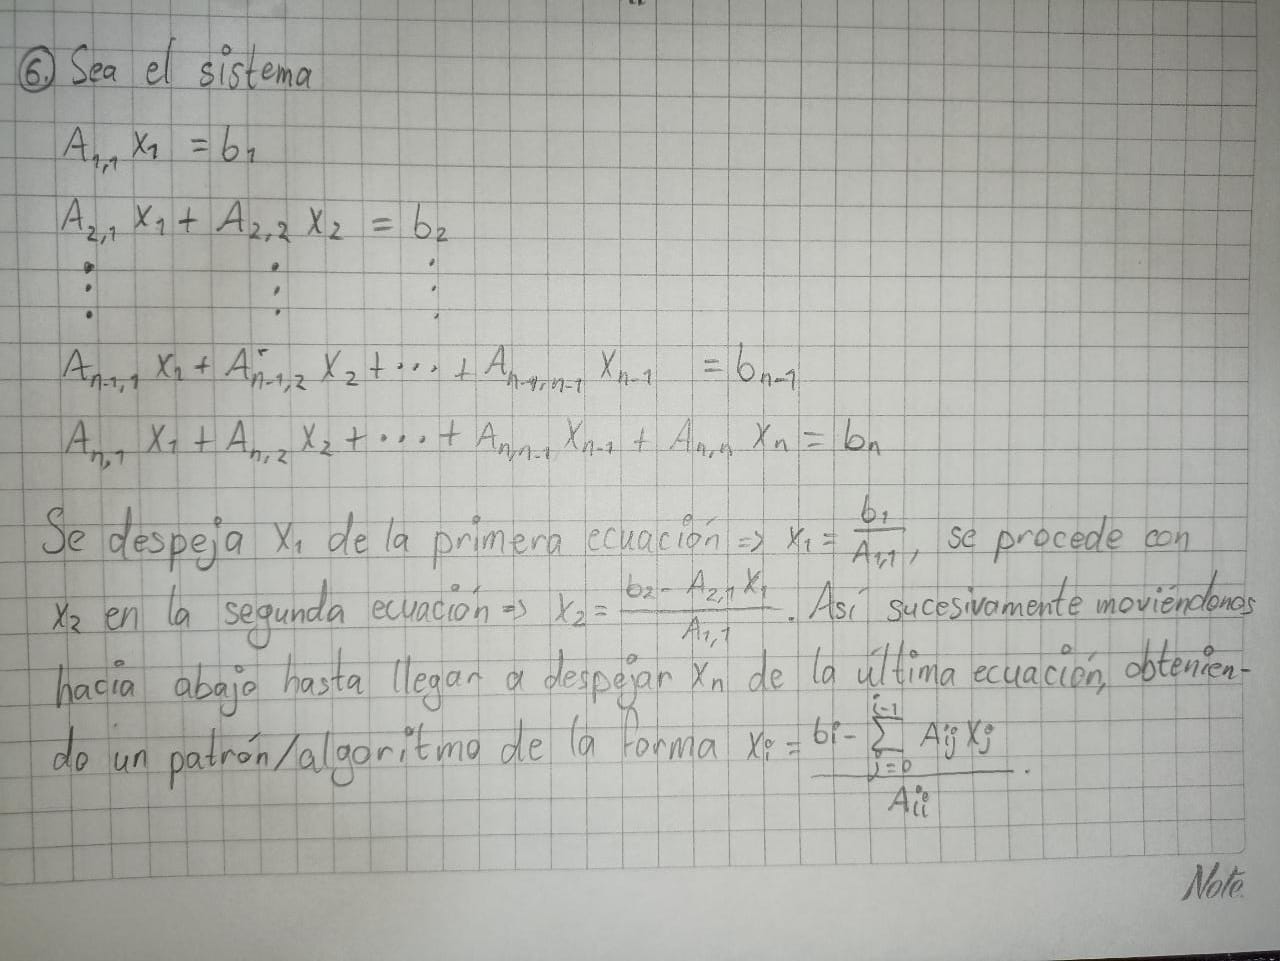 6. Sea el sistema
A₁,₁ x₁ = b₁
A₂,₁ x₁ + A₂,₂ x₂ = b₂
⋮ ⋮ ⋮
Aₙ₋₁,₁ x₁ + Aₙ₋₁,₂ x₂ + ... + Aₙ₋₁,ₙ₋₁ xₙ₋₁ = bₙ₋₁
Aₙ,₁ x₁ + Aₙ,₂ x₂ + ... + Aₙ,ₙ₋₁ xₙ₋₁ + Aₙ,ₙ xₙ = bₙ
Se despeja x₁ de la primera ecuación => x₁ = b₁/A₁,₁, se procede con
x₂ en la segunda ecuación => x₂ = (b₂ - A₂,₁ x₁)/A₁,₁. Así sucesivamente moviéndonos
hacia abajo hasta llegar a despejar xₙ de la última ecuación, obtenien-
do un patrón/algoritmo de la forma xᵢ = (bᵢ - ∑_{j=0}^{i-1} Aᵢⱼ xⱼ)/Aᵢᵢ.
Note